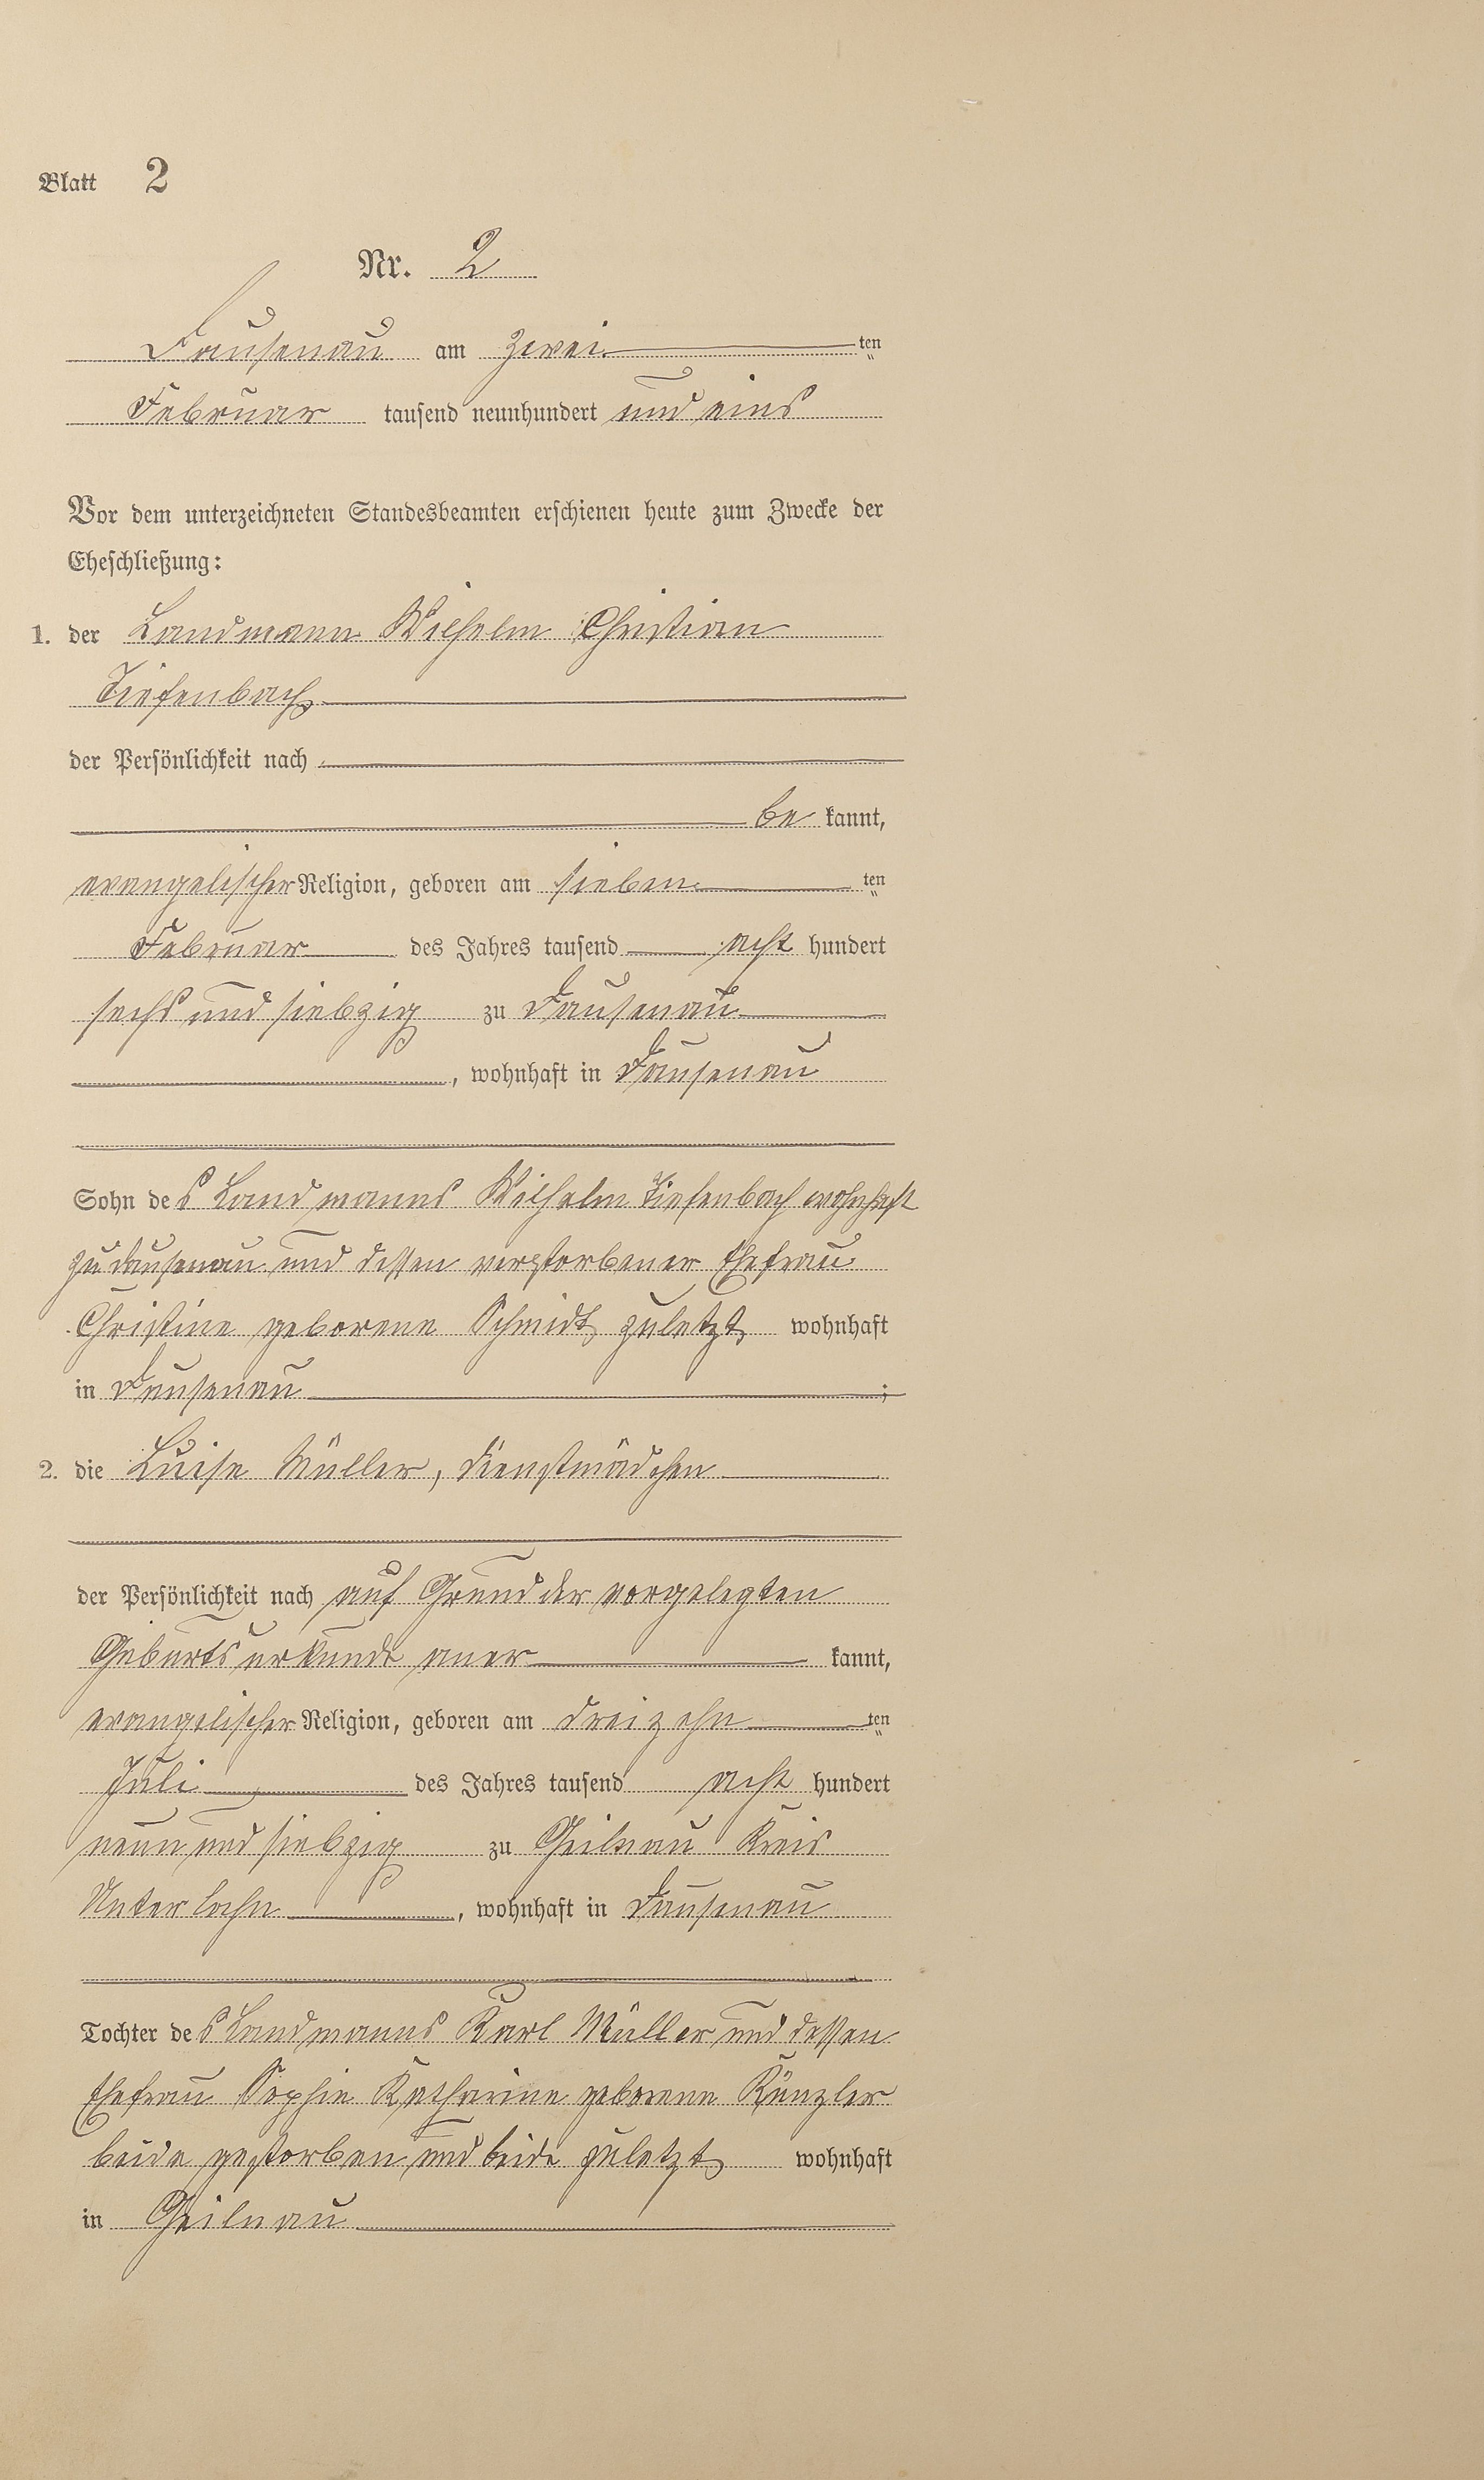 Blatt 2
Nr. 2
Dausenau am zwei ten
Februar tausend neunhundert und eins
Vor dem unterzeichneten Standesbeamten erschienen heute zum Zwecke der
Eheschließung:
1. der Landmann Wilhelm Christian
Tiefenbach
der Persönlichkeit nach
be kannt,
evangelischer Religion, geboren am sieben ten
Februar des Jahres tausend acht hundert
sechs und siebzig zu Dausenau
, wohnhaft in Dausenau
Sohn des Landmanns Wilhelm Tiefenbach wohnhaft
zu Dausenau und dessen verstorbener Ehefrau
Christine geborene Schmidt zuletzt wohnhaft
in Dausenau ;
2. die Luise Müller, Dienstmädchen
der Persönlichkeit nach auf Grund der vorgelegten
Geburtsurkunde aner kannt,
evangelischer Religion, geboren am dreizehn ten
Juli des Jahres tausend acht hundert
neun und siebzig zu Geilnau Kreis
Unterlahn , wohnhaft in Dausenau
Tochter des Landmanns Karl Müller und dessen
Ehefrau Sophie Katharine geborene Künzler
beide gestorben und beide zuletzt wohnhaft
in Geilnau